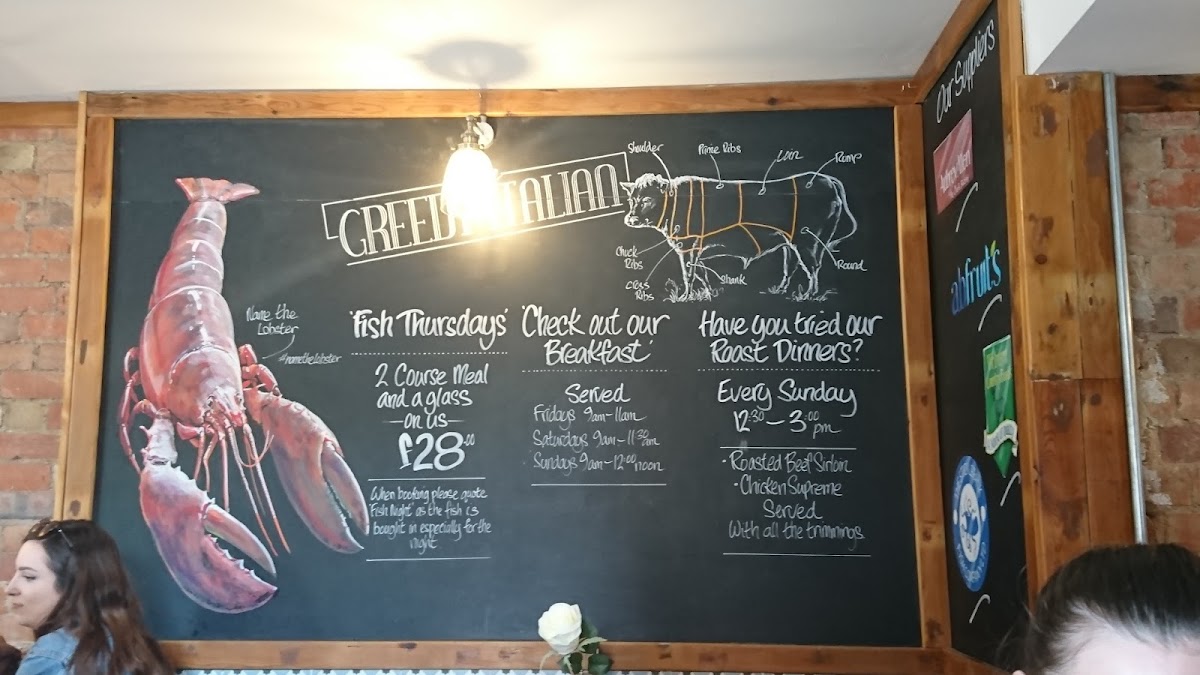 GREEDY ITALIAN
Shoulder
Prime Ribs
Loin
Rump
Chuck
Ribs
Cross
Ribs
Shank
Round
Name the
Lobster
#namethelobster
'Fish Thursdays'
2 Course Meal
and a glass
on us
£28.00
When booking please quote
'Fish Night' as the fish is
bought in especially for the
night
'Check out our
Breakfast'
Served
Fridays 9am-11am
Saturdays 9am-11:30am
Sundays 9am-12:00noon
Have you tried our
Roast Dinners?
Every Sunday
12:30-3:00pm
• Roasted Beef Sirloin
• Chicken Supreme
Served
With all the trimmings
Our Suppliers
Aubrey Allen
abfruits